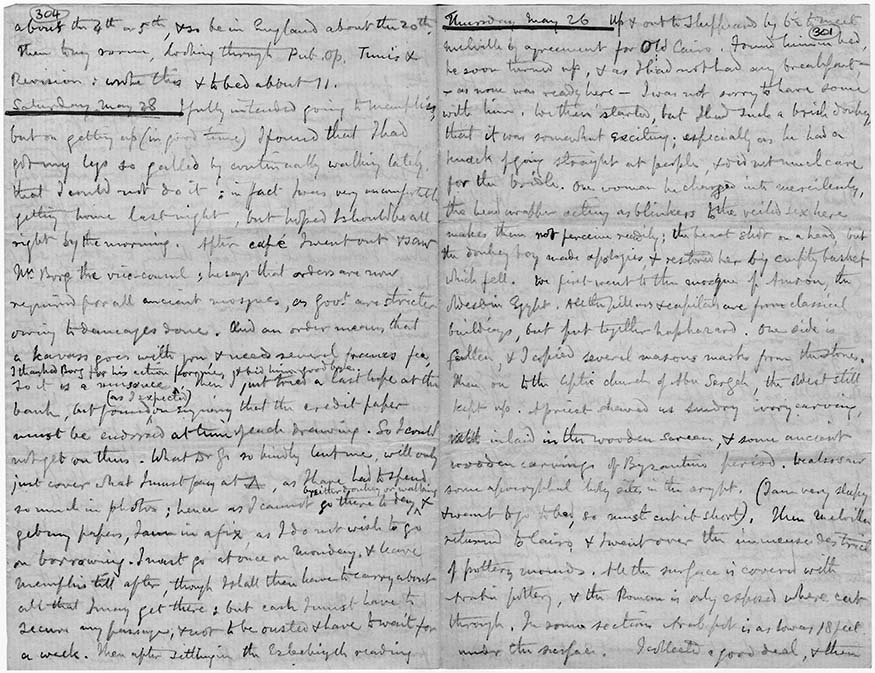 304
about the 4th or 5th, & so be in England about the 20th.
Then busy room, looking through Pub. Op. Tunis &
Revision: wrote this & to bed about 11.
Saturday May 28 I fully intended going to Memphis,
but on getting up (in good time) I found that I had
got my legs so galled by continually walking lately
that I could not do it; in fact I was very uncomfortable
getting home last night, but hoped I should be all
right by the morning. After café I went out & saw
Mr Borg the vice-consul; he says that orders are now
required for all ancient mosques, as Govt are stricter
owing to damages done. And an order means that
a kavass goes with you & needs several francs fee,
I thanked Borg for his action forgeries, & bid him good bye.
So it is a nuisance. Then I just tried a last hope at the
(as I expected)
bank, but found on enquiring that the credit paper
must be endorsed at time of each drawing. So I could
not get on thus. What Dr G. so kindly lent me, will only
just cover what I must pay at, as I have had to spend
either donkey or walking
so much in photos; hence as I cannot go there to day &
get my papers, I am in a fix, as I do not wish to go
on borrowing. I must go at once on Monday, & leave
Memphis till after, though I shall then have to carry about
all that I may get there; but cash I must have to
secure my passage, & not to be ousted & have to wait for
a week. Then after sitting in the Esbekiyeh reading
301
Thursday May 26 Up & out to Shepheard by 6½ to meet
Melville by agreement for Old Cairo. Found him in bed,
he soon turned up, & as I had not had any breakfast –
– as none was ready here – I was not sorry to have some
with him. We then started, but I had such a brisk donkey
that it was somewhat exciting; especially as he had a
knack of going straight at people, & did not much care
for the bridle. One woman he charged into mercilessly,
the head wrapper acting as blinkers to the veiled sex here
makes them not perceive readily; she went shot on a head, but
the donkey boy made apologies & restored her big empty basket
which fell. We first went to the mosque of Amron, the
oldest in Egypt. All the pillars & capitals are from classical
buildings, but put together haphazard. One side is
fallen, & I copied several masons marks from the stones.
Then on to the Coptic church of Abu Sergeh, the oldest still
kept up. A priest shewed us sundry ivory carving,
inlaid in the wooden screen, & some ancient
wooden carvings of Byzantine period. We also saw
some apocryphal holy sites, in the crypt. (I am very sleepy
& want to go to bed, so must cut it short). Then Melville
returned to Cairo & I went over the immense district
of pottery mounds. All the surface is covered with
Arabic pottery, & the Roman is only exposed where cut
through. In some sections Arab pot is as low as 18 feet
under the surface. I collected a good deal, & then